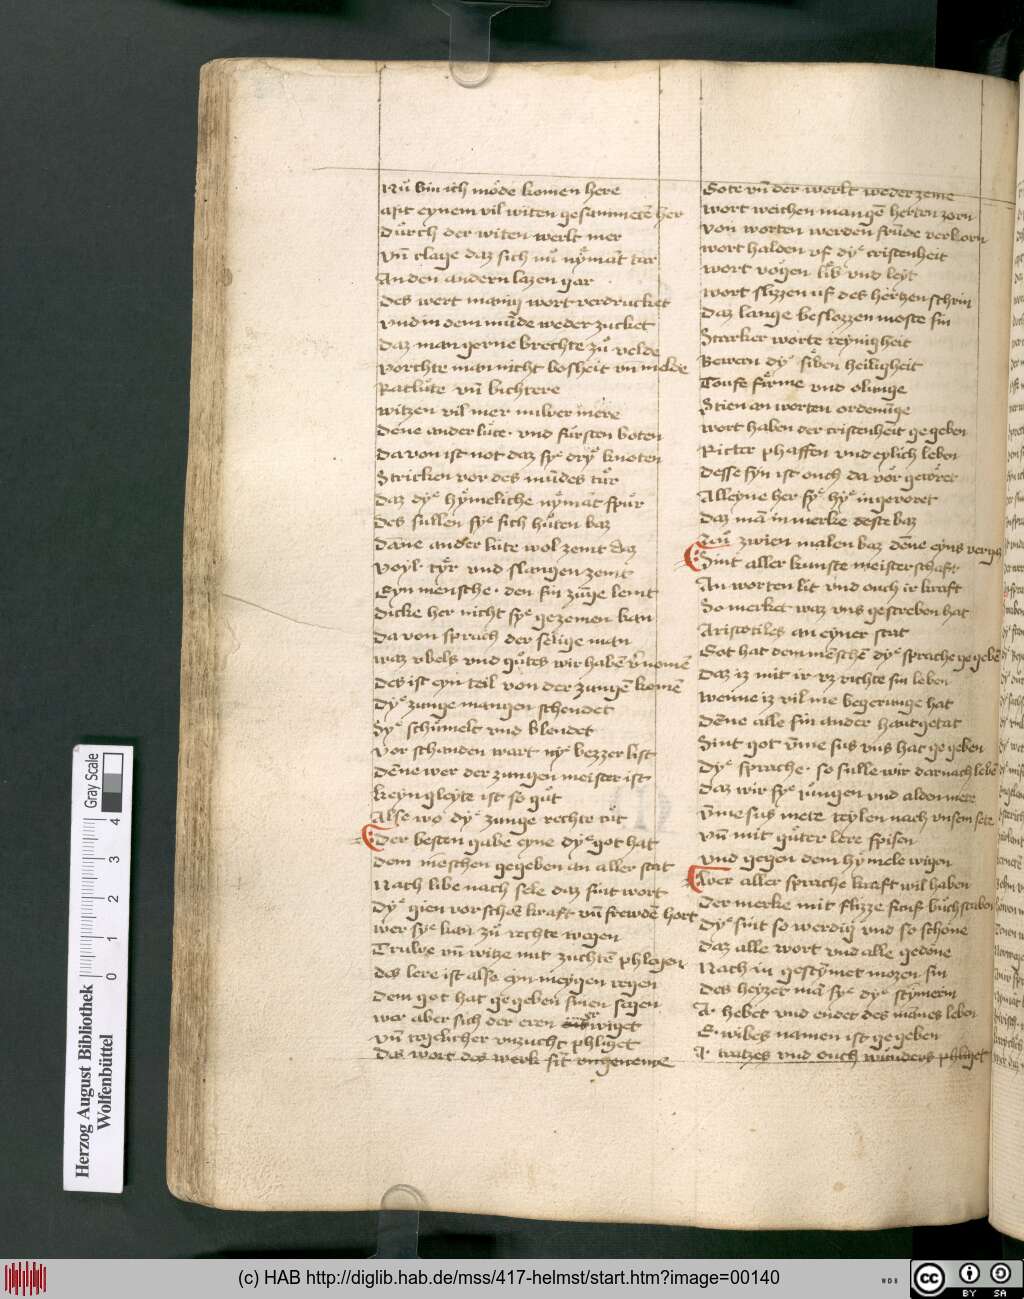 Nu bin ich mode komen here
Mit eynem vil witen gesammete her
Durch der witen werlt mer
Vn clage daz sich nu nymāt tar
An den andern lazen gar
Des wert manig wort verdrucket
vnd in dem mūde weder zucket
Daz man gerne brechte zu velde
vorchte man nicht bosheit vn melde
Ratlute vn bichtere
witzen vil mer
dene ander lute vnd fursten boten
Da von ist not daz sye drye knoten
Stricken vor des mūdes tur
daz dye hymeliche nymāt spur
des sullen sye sich huten baz
dāne ander lute wol zemt daz
voyl tyr vnd slangen zemt
Eyn mensche den sin zūge lemt
dicke her nicht sye gezemen kan
Da von sprach der selige man
waz vbels vnd gutes wir habē v'nomē
des ist eyn teil von der zungē komē
Dye zunge mangen schendet
Sye schumelt vnd blendet
vor schanden wart nye bezzer list
dēne wer der zungen meister ist
keyn gleyte ist so gut
Alse wo dye zunge rechte tut
Der besten gabe eyne dye got hat
dem mēschen gegeben an aller stat
Nach libe nach sele daz sint wort
Dye gien vor schoē kraft vn frewdē hort
wer sye kan zu rechte wegen
Truwe vn witze mit zuchtē phlegen
des lere ist alse eyn meygen regen
Dem got hat gegeben sinen segen
wer aber sich der eren wiget
vn togelicher vnzucht phliget
Des wort des werk sīt vngeneme
Gote vn der werlt wederzeme
wort weichen mangē herten zorn
von worten werden frūde verkorn
wort halden vf dye cristenheit
wort vogen lib vnd leyt
wort slizzen uf des hertzen schrin
Daz lange beslozzen moste sin
Starker worte reynigheit
Bewern dye siben heiligheit
Toufe firme vnd olunge
Stien an worten ordenūge
wort haben der cristenheit gegeben
Ricter phaffen vnd eylich leben
Desse syn ist ouch da vor geroret
Alleyne her sye hye ingevoret
Daz mā in merke deste baz
Nu zwien malen baz dēne eyns
Sint aller kunste meisterschaft
An worten lit vnd ouch ir kraft
So merket waz vns gescreben hat
Aristotiles an eyner stat
Got hat dem mēschē dye sprache gegebē
Daz iz mit ir vz richte sin leben
wenne iz vil me begerunge hat
Dēne alle sin ander hantgetat
Sint got vme sus vns hat gegeben
Dye sprache so sulle wir darnach lebē
Daz wir sye jungen vnd alden mete
vme sus mete teylen nach vnsem sete
vn mit guter lere spisen
vnd gegen dem hymele wigen
Wer aller sprache kraft wil haben
Der merke mit flizze funf buchstaben
Dye sint so werdig vnd so schone
Daz alle wort vnd alle gedone
Nach in gestymet mozen sin
Des heyzet mā sye dye stymerin
A hebet vnd endet des mānes leben
E wibes namen ist gegeben
I tratzes vnd ouch wunders phliget
Herzog August Bibliothek
Wolfenbüttel
Gray Scale
0 1 2 3 4
(c) HAB http://diglib.hab.de/mss/417-helmst/start.htm?image=00140
WDB
cc BY SA